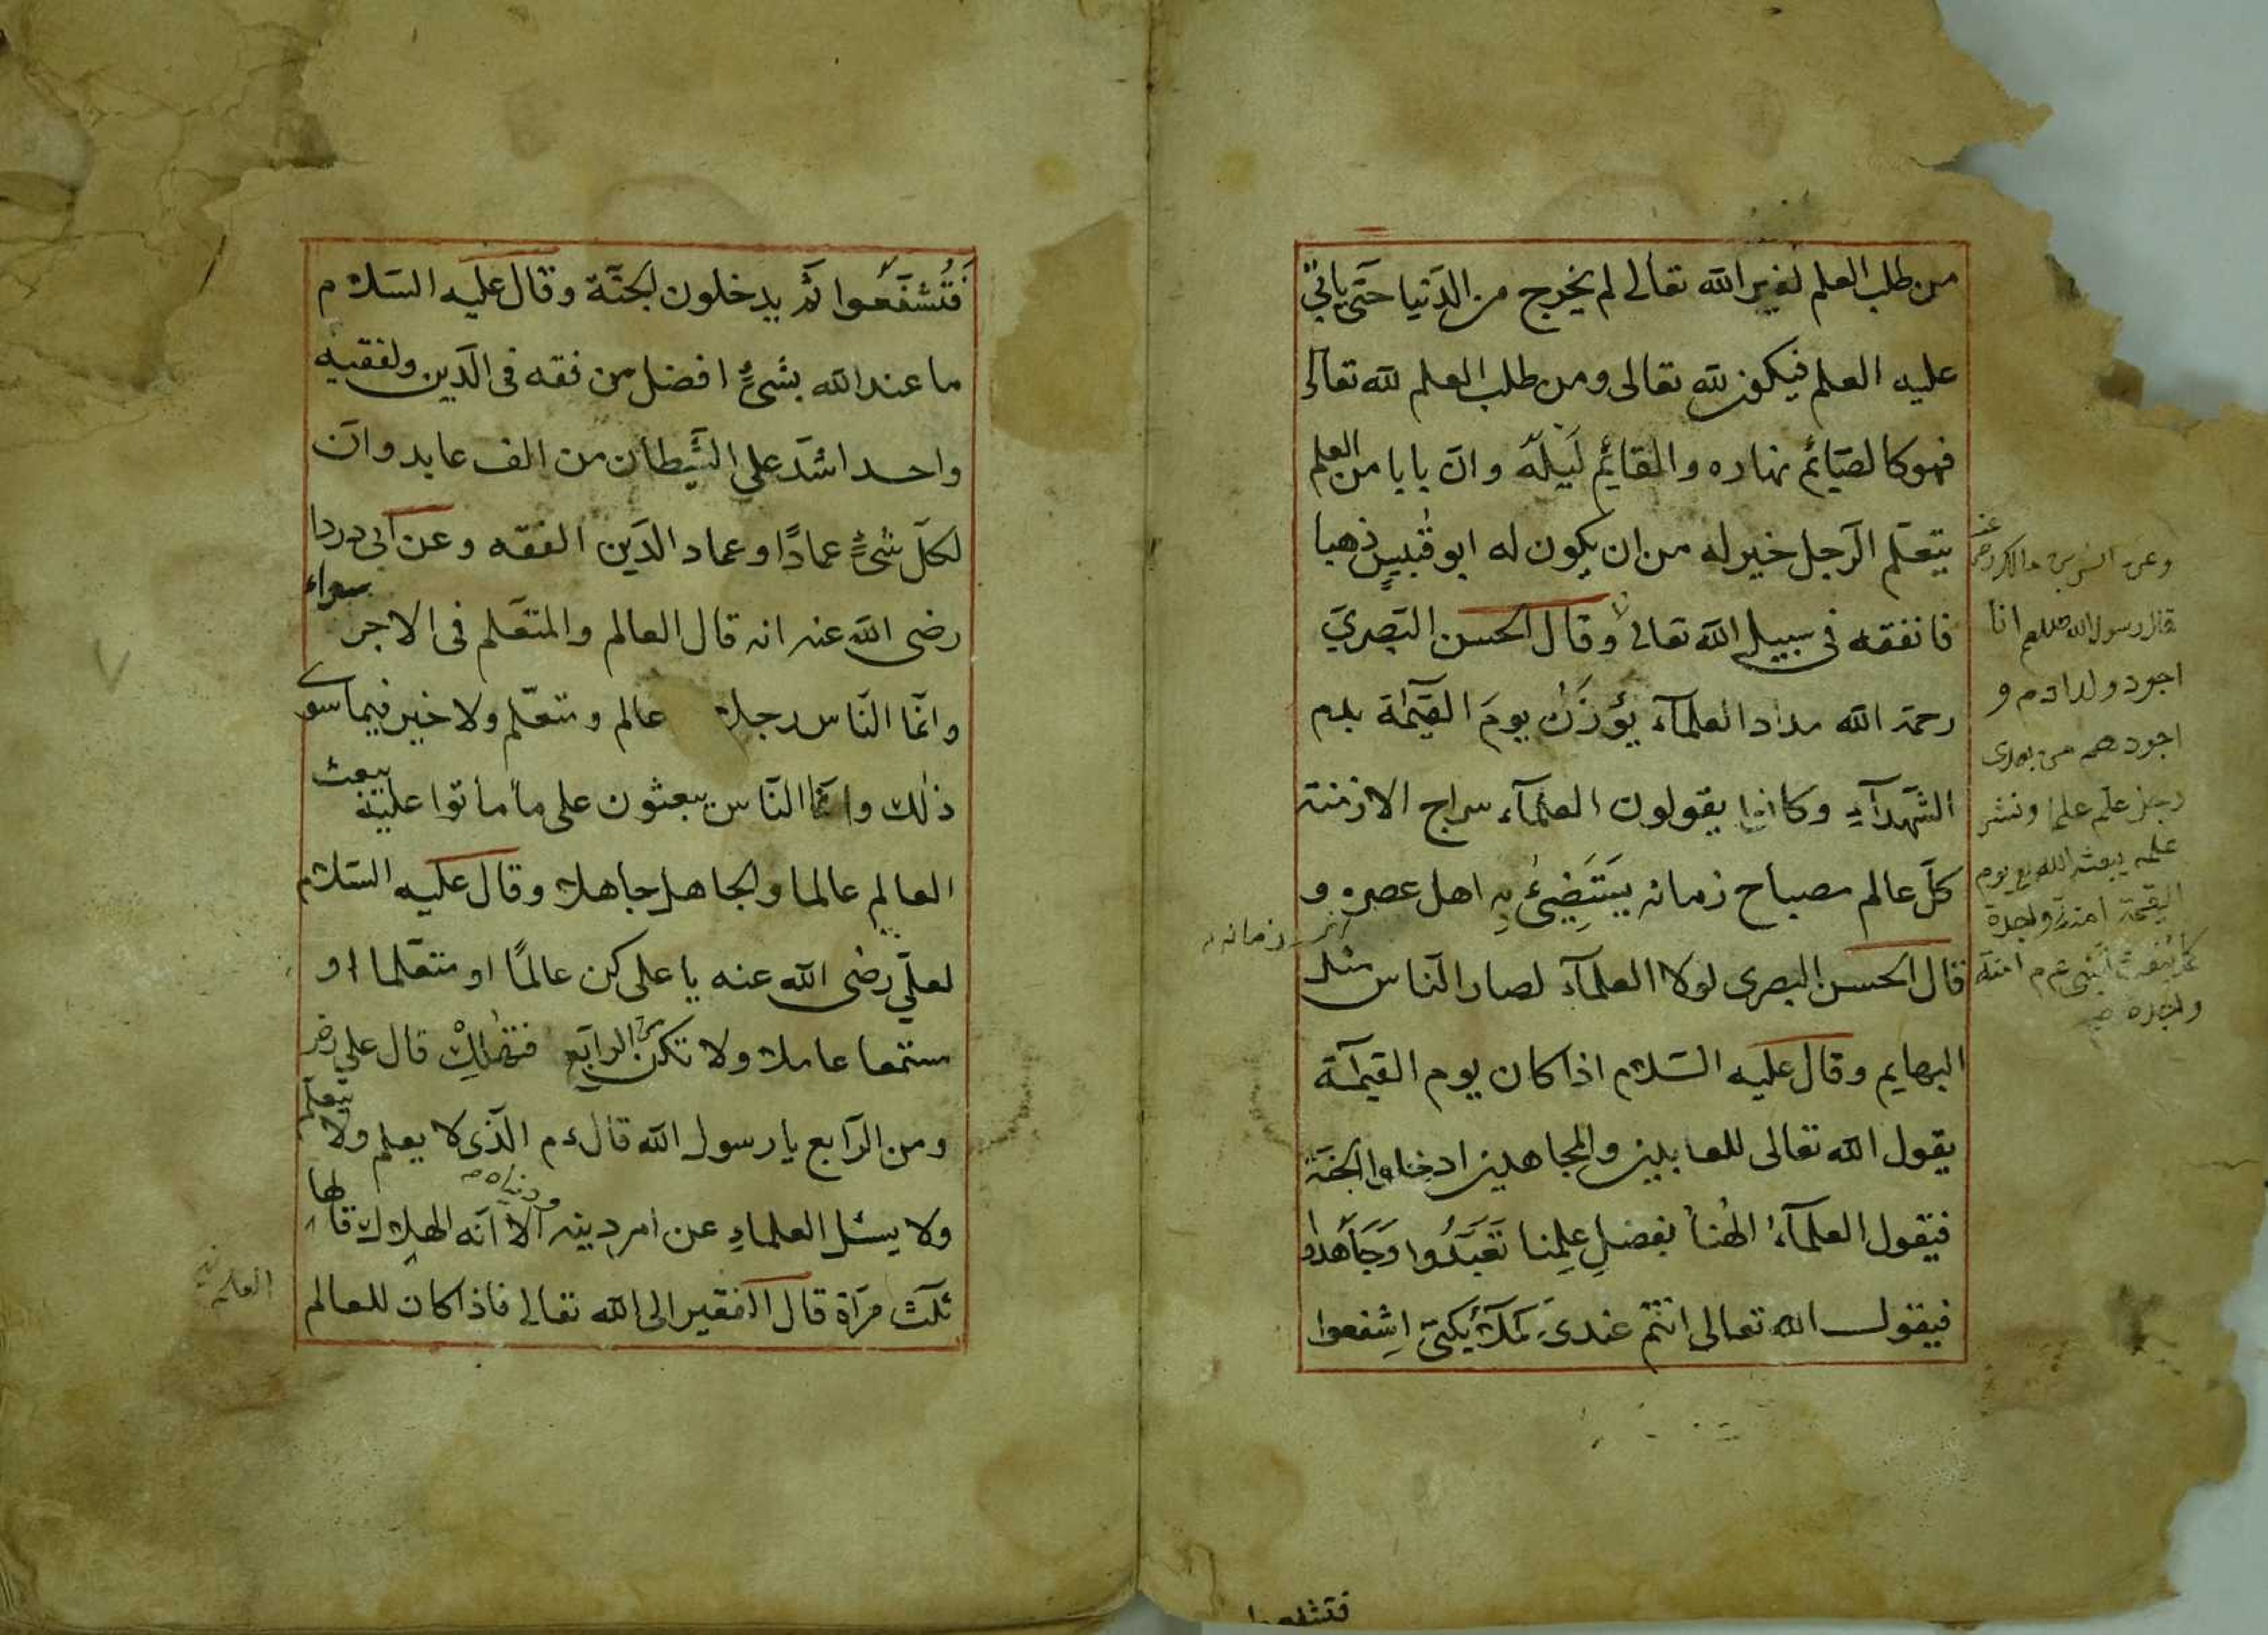 من طلب العلم لغير الله تعالى لم يخرج من الدّنيا حتّى ياتي
عليه العلم فيكون لله تعالى ومن طلب العلم لله تعالى
فهو كالصّائم نهاره والقايم لَيلَه وانّ بابا من العلم
يتعلّم الرّجل خير له من ان يكون له ابو قُبَيسٍ ذهبا
فانفقه فى سبيل الله تعالى وقال الحسن البَصريّ
رحمة الله مداد العلمآء يؤزَن يومَ القيٰمة بدم
الشّهدآءِ وكانوا يقولون العلمآء سراج الازمنة
كلّ عالم مصباح زمانه يستَضِيءُ بِهِ اهل عصره و
قال الحسن البصرى لولا العلمآءُ لصار النّاس مثل
البهايم وقال عليه السّلام اذا كان يوم القيٰمة
يقول الله تعالى للعابدين والمجاهدين ادخلوا الجنّة
فيقول العلمآءُ الٰهنا بفضلِ عِلمِنا تَعَبَّدُوا وَجَاهَدُوا
فيقول الله تعالى انتم عندى كملآئكتى اِشفعوا
وعن انس بن مالك رض عنه
قال رسول الله صلعم انا
اجود ولد ادم و
اجودهم من بعدى
رجل علم علما ونشر
علمه يبعثه الله يوم
القيمة امة واحدة
كما يبعث النبى ع م امة
واحدة
زمانه
فتشفعوا
فَتُشَفَّعُوا ثمّ يدخلون الجنّة وقال عليه السّلام
ما عند الله بشىءٍ افضل من فقه فى الدّين ولفقيه
واحد اشدّ على الشّيطان من الف عابد وانّ
لكلّ شىءٍ عمادًا وعماد الدّين الفقه وعن ابى دردا
رضى الله عنه انه قال العالم والمتعّلم فى الاجر سواء
وانّما النّاس رجلان عالم ومتعّلم ولا خير فيما سوى
ذٰلك وانّما النّاس يبعثون على ما ماتوا عليه يبعث
العالم عالما والجاهل جاهلا وقال عليه السّلام
لعلّي رضى الله عنه يا على كن عالمًا او متعّلما او
مستمعا عاملا ولا تكن من الرابع فتهلِكْ قال على رض
ومن الرّابع يا رسول الله قال ع م الّذى لا يعلم ولا يتعلّم
ولا يسئل العلماءِ عن امر دينه ودنياه الا انّه الهلاك قالها
ثلٰث مرّاة قال الفقير الى الله تعالى فاذا كان للعالم
العلم